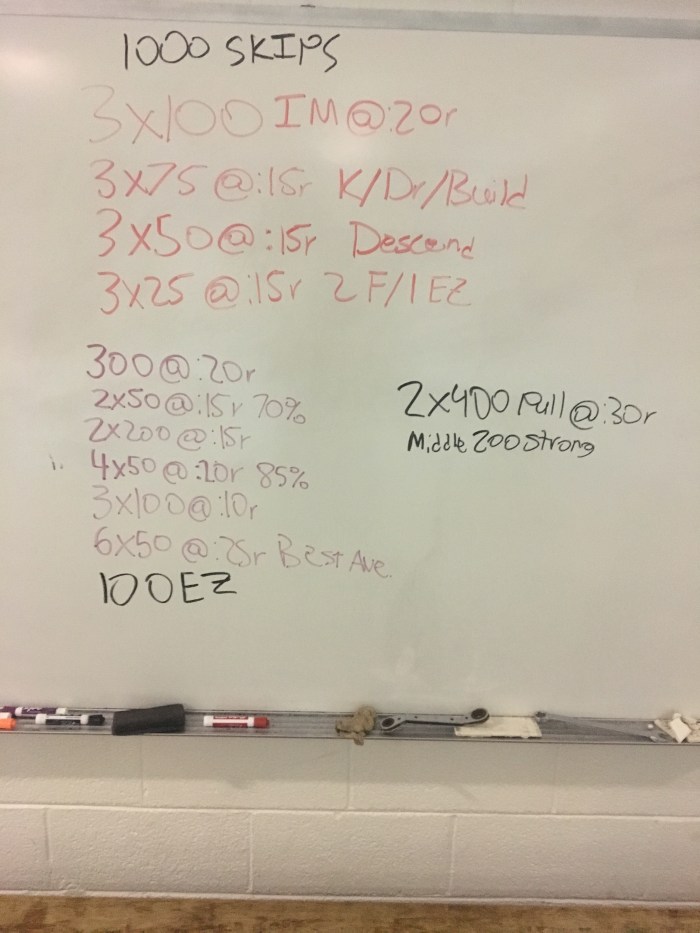 1000 SKIPS
3x100 IM @:20r
3x75 @:15r K/Dr/Build
3x50 @:15r Descend
3x25 @:15r 2F/1EZ
300 @:20r
2x50 @:15r 70%
2x200 @:15r
4x50 @:20r 85%
3x100 @:10r
6x50 @:25r Best Ave.
100EZ
2x400 Pull @:30r
Middle 200 Strong